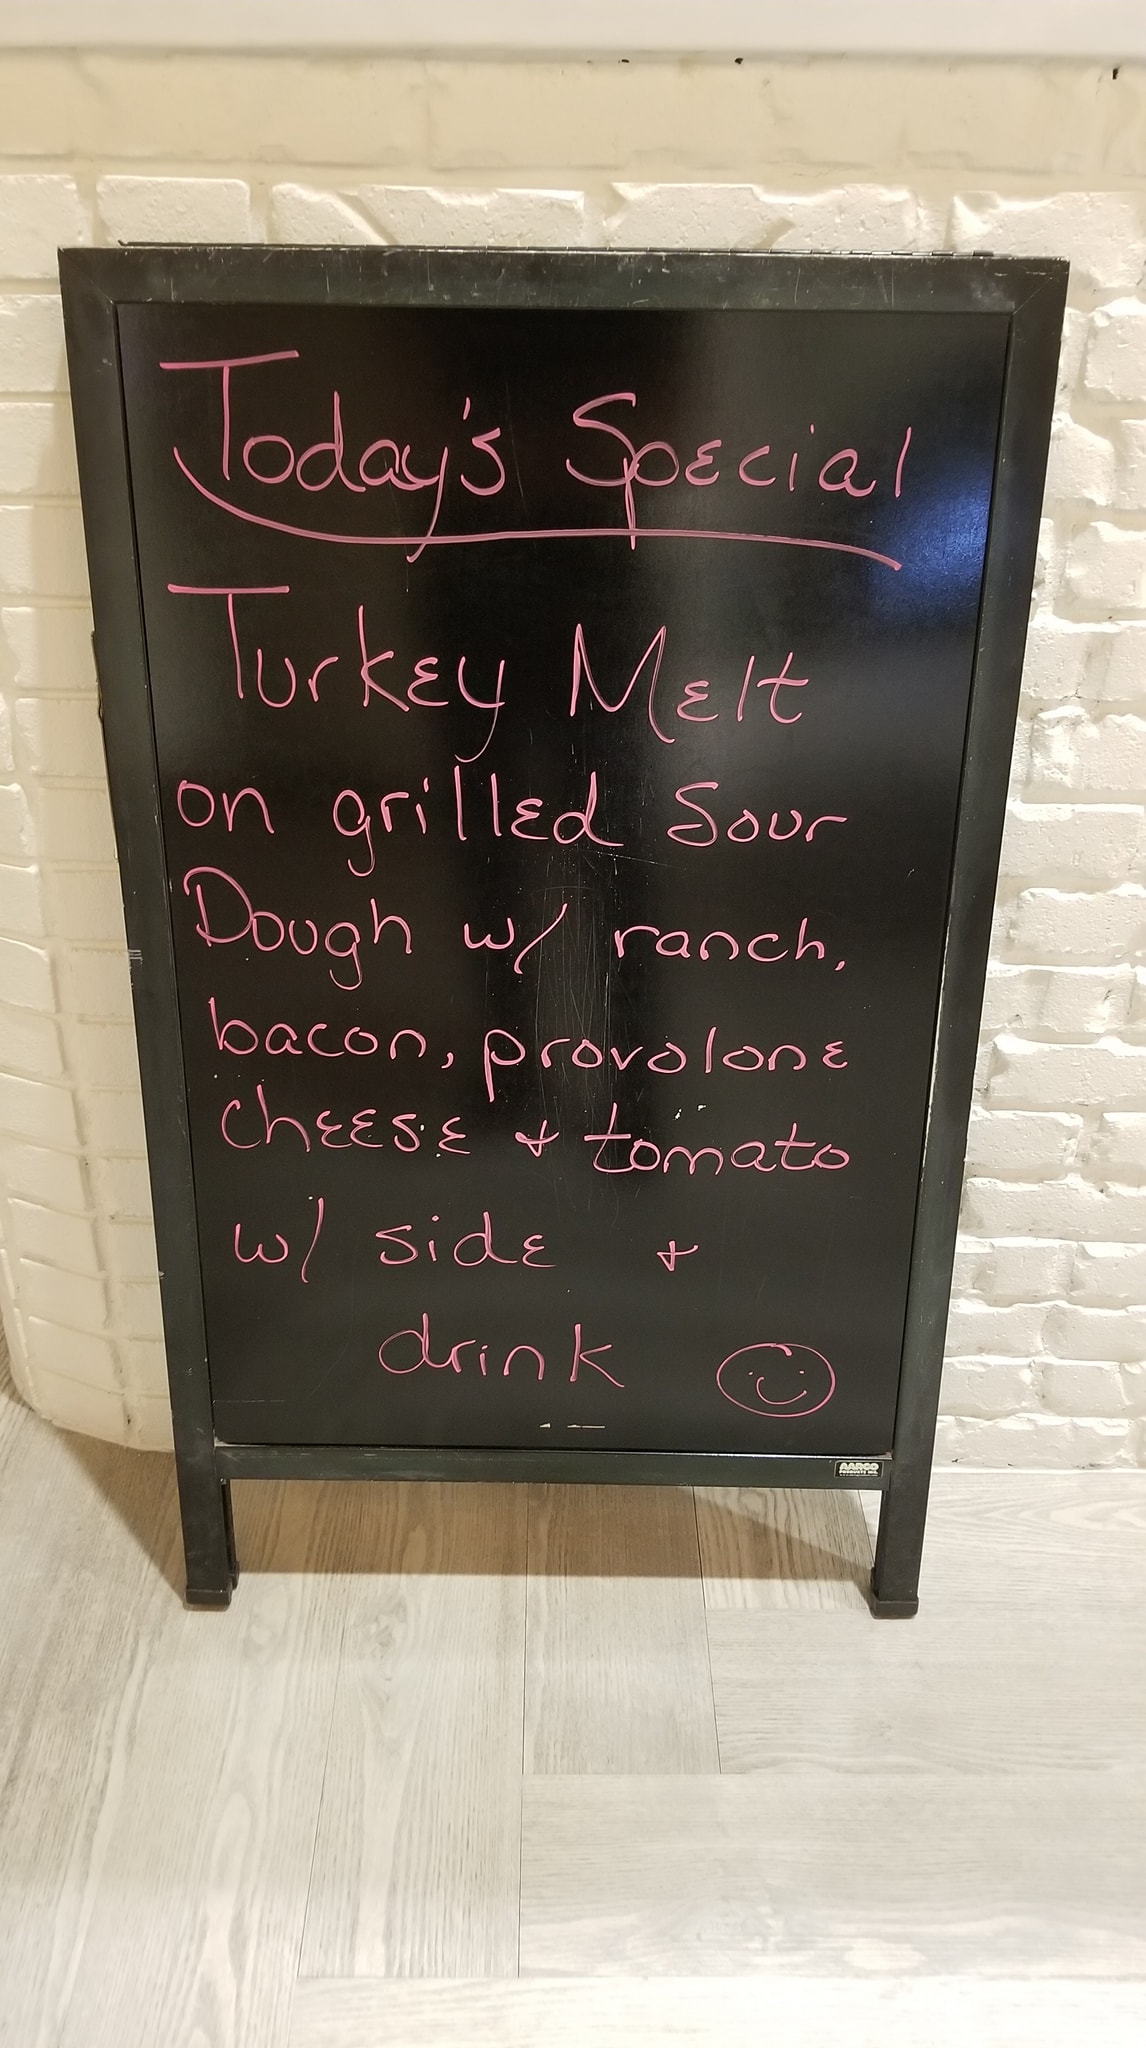 Today's Special
Turkey Melt
on grilled Sour
Dough w/ ranch,
bacon, provolone
cheese + tomato
w/ side +
drink
AARCO
PRODUCTS INC.